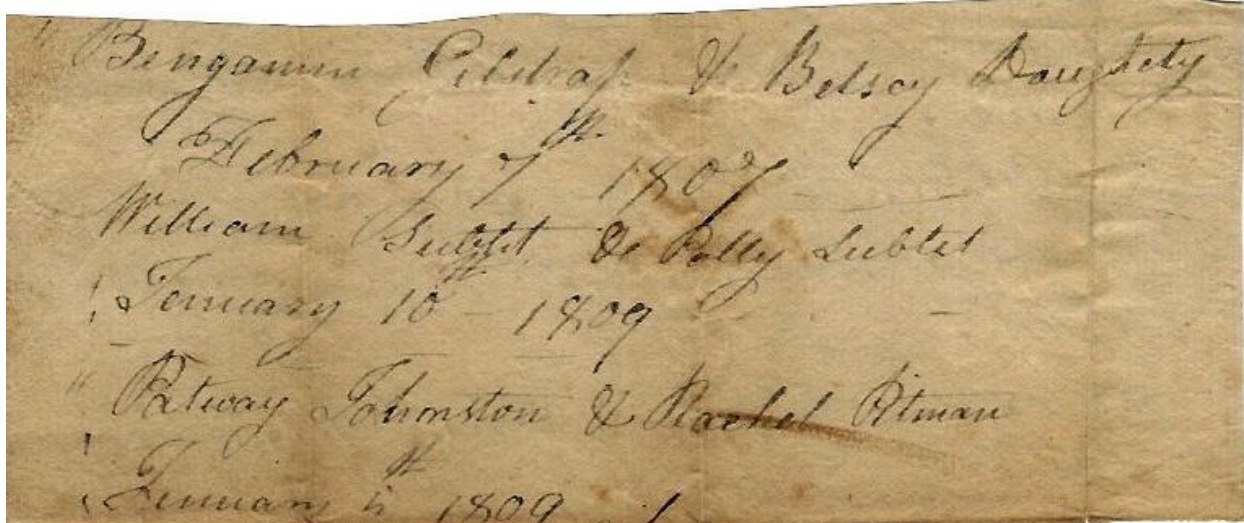 Bengamin & Betsey Daughety
February 7th 1807
William Sublet & Polly Sublet
Jenuary 10th - 1809 -
" Patway Johnston & Rachel Pitman
Jenuary th 1809